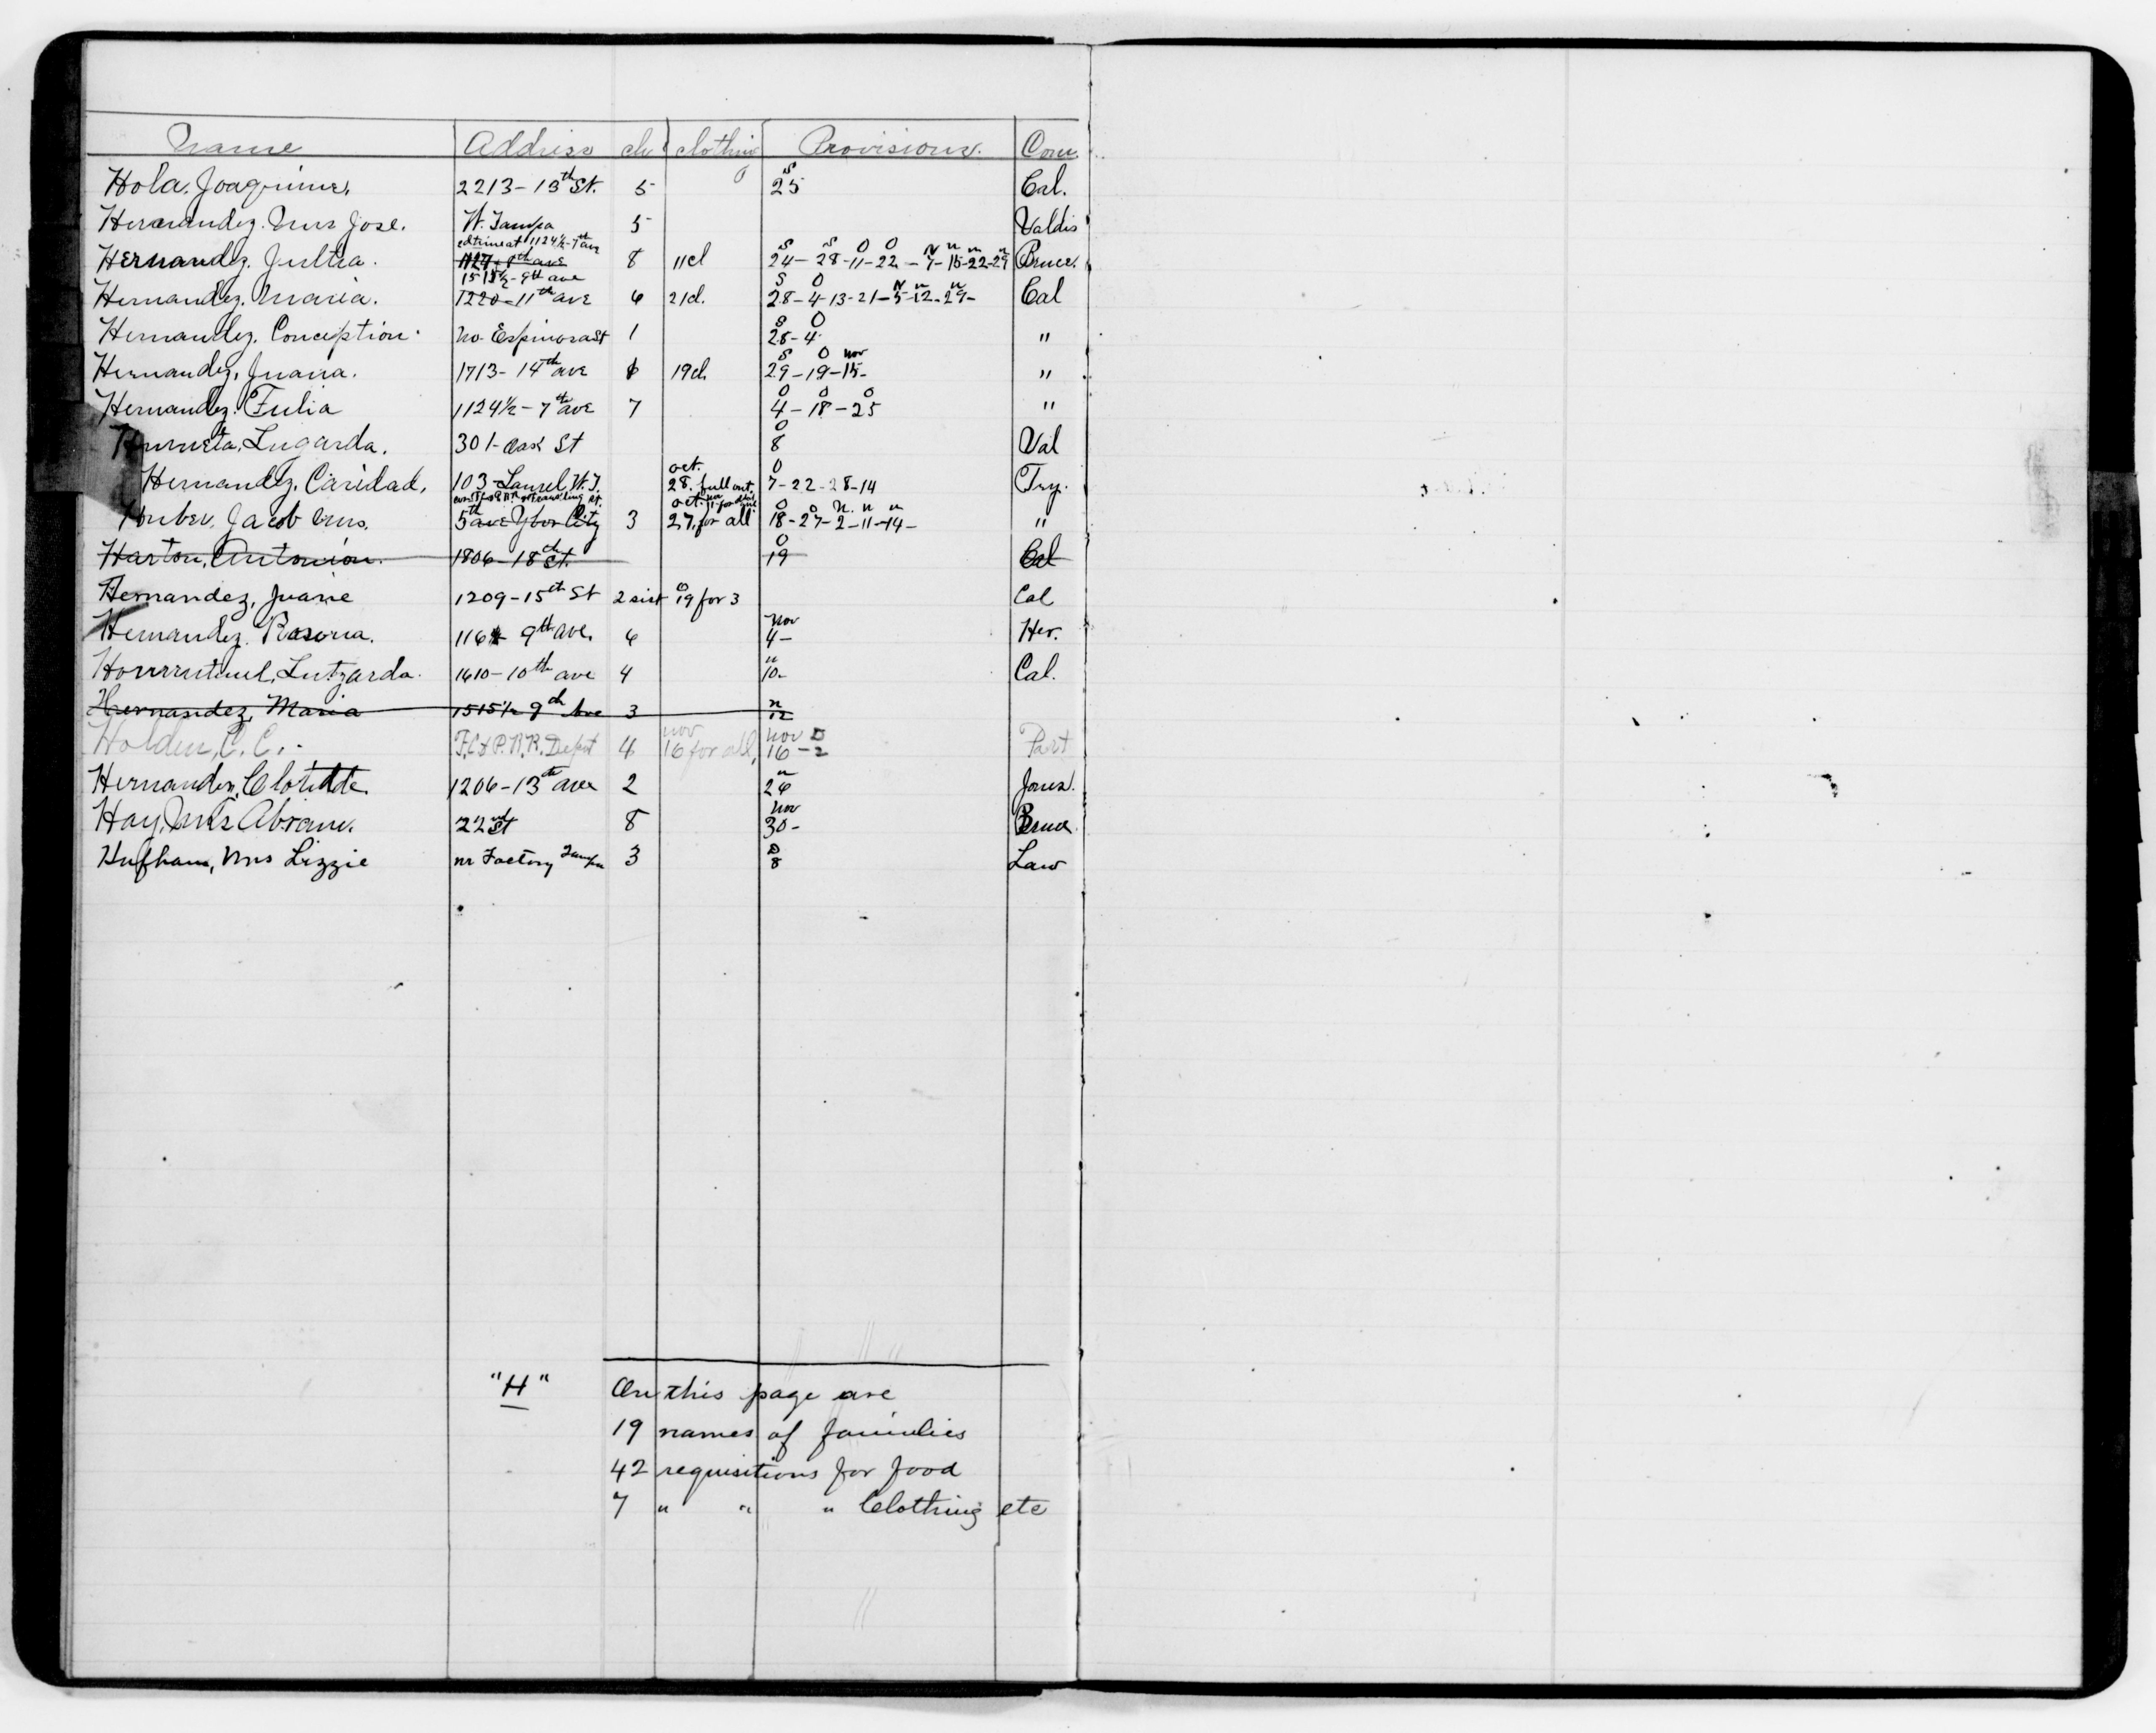 Name Address ch clothing Provisions. Com.
Hola, Joaquine, 2213-13th St. 5 S 25 Cal.
Hernandez. Mrs Jose. W. Tampa 5 Valdis
Hernandez. Julia. 1124½-7th ave 1127-8th ave 8 11cl S 24 - S 28 - O 11 - O 22 - N 7 - n 15 - n 22 - n 29 Bruce.
Hernandez. Maria. 1515½-9th ave 1220-11th ave 6 21cl. S 28 - O 4 - 13 - 21 - N 5 - n 12 - n 29 - Cal
Hernandez. Conception. No. Espinosa St 1 S 28 - O 4 "
Hernandez, Juana. 1713-14th ave 19ch S 29 - O 19 - nov 15 - "
Hernandez. Julia 1124½-7th ave 7 O 4 - O 18 - O 25 "
Lugarda. 301-Oak St O 8 Val
Hernandez. Caridad, 103-Laurel W.T. oct. 28. full out. O 7-22-28-14 Try.
Huber. Jacob Mrs. 5th ave Ybor City 3 oct. 27. for all O 18 - O 27 - N. 2 - n 11 - n 14 - "
Harton, Antonion. 1806-18th St. O 19 Cal
Hernandez, Juane 1209-15th St 2 sist O 19 for 3 Cal
Hernandez. Rosoria. 116 9th ave. 6 Nov 4 - Her.
Lutgarda. 1610-10th ave 4 n 10 - Cal.
Hernandez, Maria 1515½ 9th Ave 3 n 12
Holden, C. C. F.C & P.R.R. Depot 4 nov 16 for all, nov 16 - D 2 Part
Hernandez, Clotilde 1206-13th ave 2 n 26 Jones.
Hay, Mrs Abram. 22nd St 8 Nov 30 - Bruce.
Hufham, Mrs Lizzie nr Factory Tampa 3 D 8 Law
"H" On this page are
19 names of families
42 requisitions for food
7 " " " Clothing etc